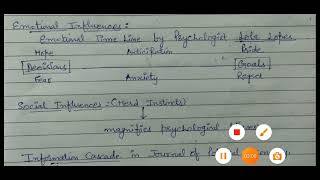 Emotional Influences:
Emotional Time line by Psychologist Lola Lopes
Hope Anticipation Pride
Decisions Goals
Fear Anxiety Regret
Social Influences :- (Herd Instincts)
magnifies psychological
Information Cascade in Journal of